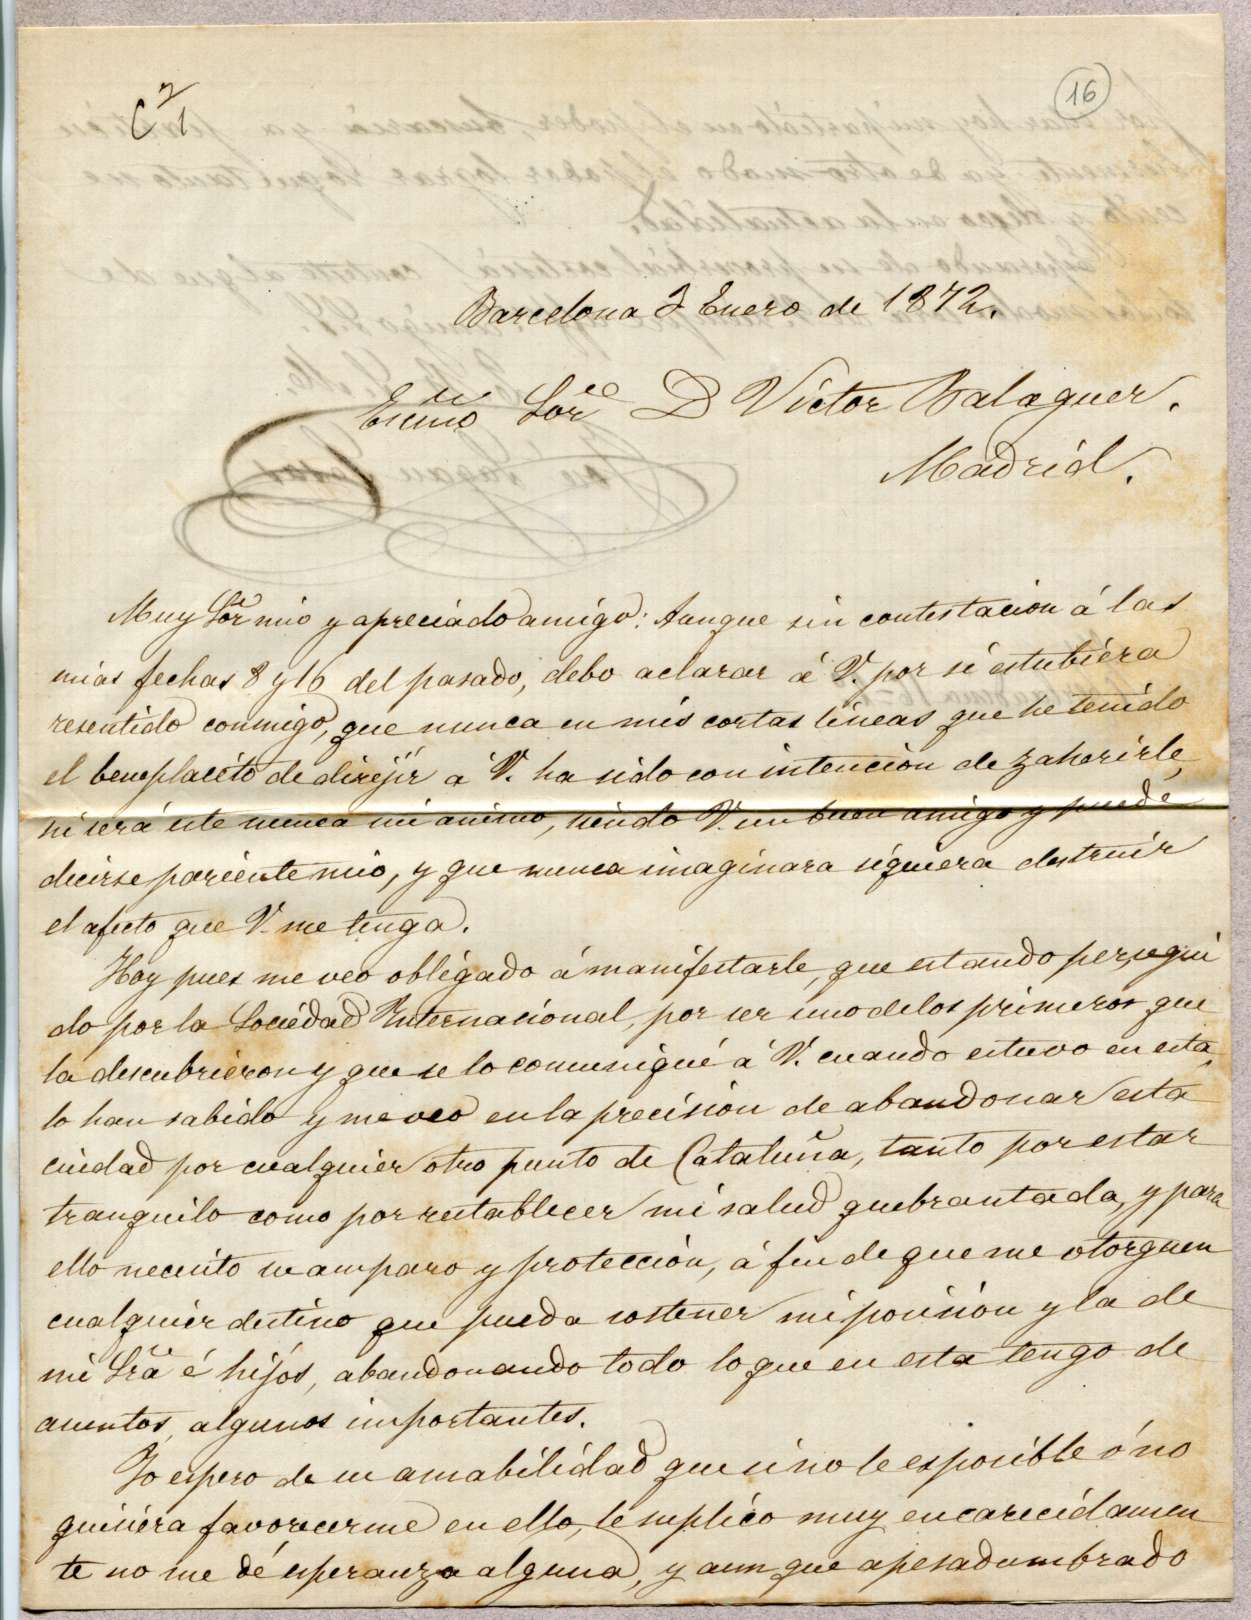 16
Barcelona 2 Enero de 1872.
Excmo Sor D Victor Balaguer.
Madrid.
Muy Sor mio y apreciado amigo: Aunque sin contestacion á las
mias fechas 8 y 16 del pasado, debo aclarar á V. por si estubiera
resentido conmigo, que nunca en mis cortas lineas que he tenido
el beneplacito de dirijir á V. ha sido con intencion de zaherirle,
ni será este nunca mi animo, siendo V. un buen amigo y puede
decirse pariente mio, y que nunca imaginara siquiera destruir
el afecto que V. me tenga.
Hoy pues me veo obligado á manifestarle, que estando persegui
do por la Sociedad Internacional, por ser uno de los primeros que
la descubrieron y que se lo comuniqué á V. cuando estuvo en esta,
lo han sabido y me veo en la precision de abandonar esta
ciudad por cualquier otro punto de Cataluña, tanto por estar
tranquilo como por restablecer mi salud quebrantada, y para
ello necesito su amparo y protección, á fin de que me otorguen
cualquier destino que pueda sostener mi posision y la de
mi Sra é hijos, abandonando todo lo que en esta tengo de
asuntos, algunos importantes.
Yo espero de su amabilidad que si no le es posible ó no
quisiera favorecerme en ello, le suplico muy encarecidamen
te no me dé esperanza alguna, y aunque apesadumbrado